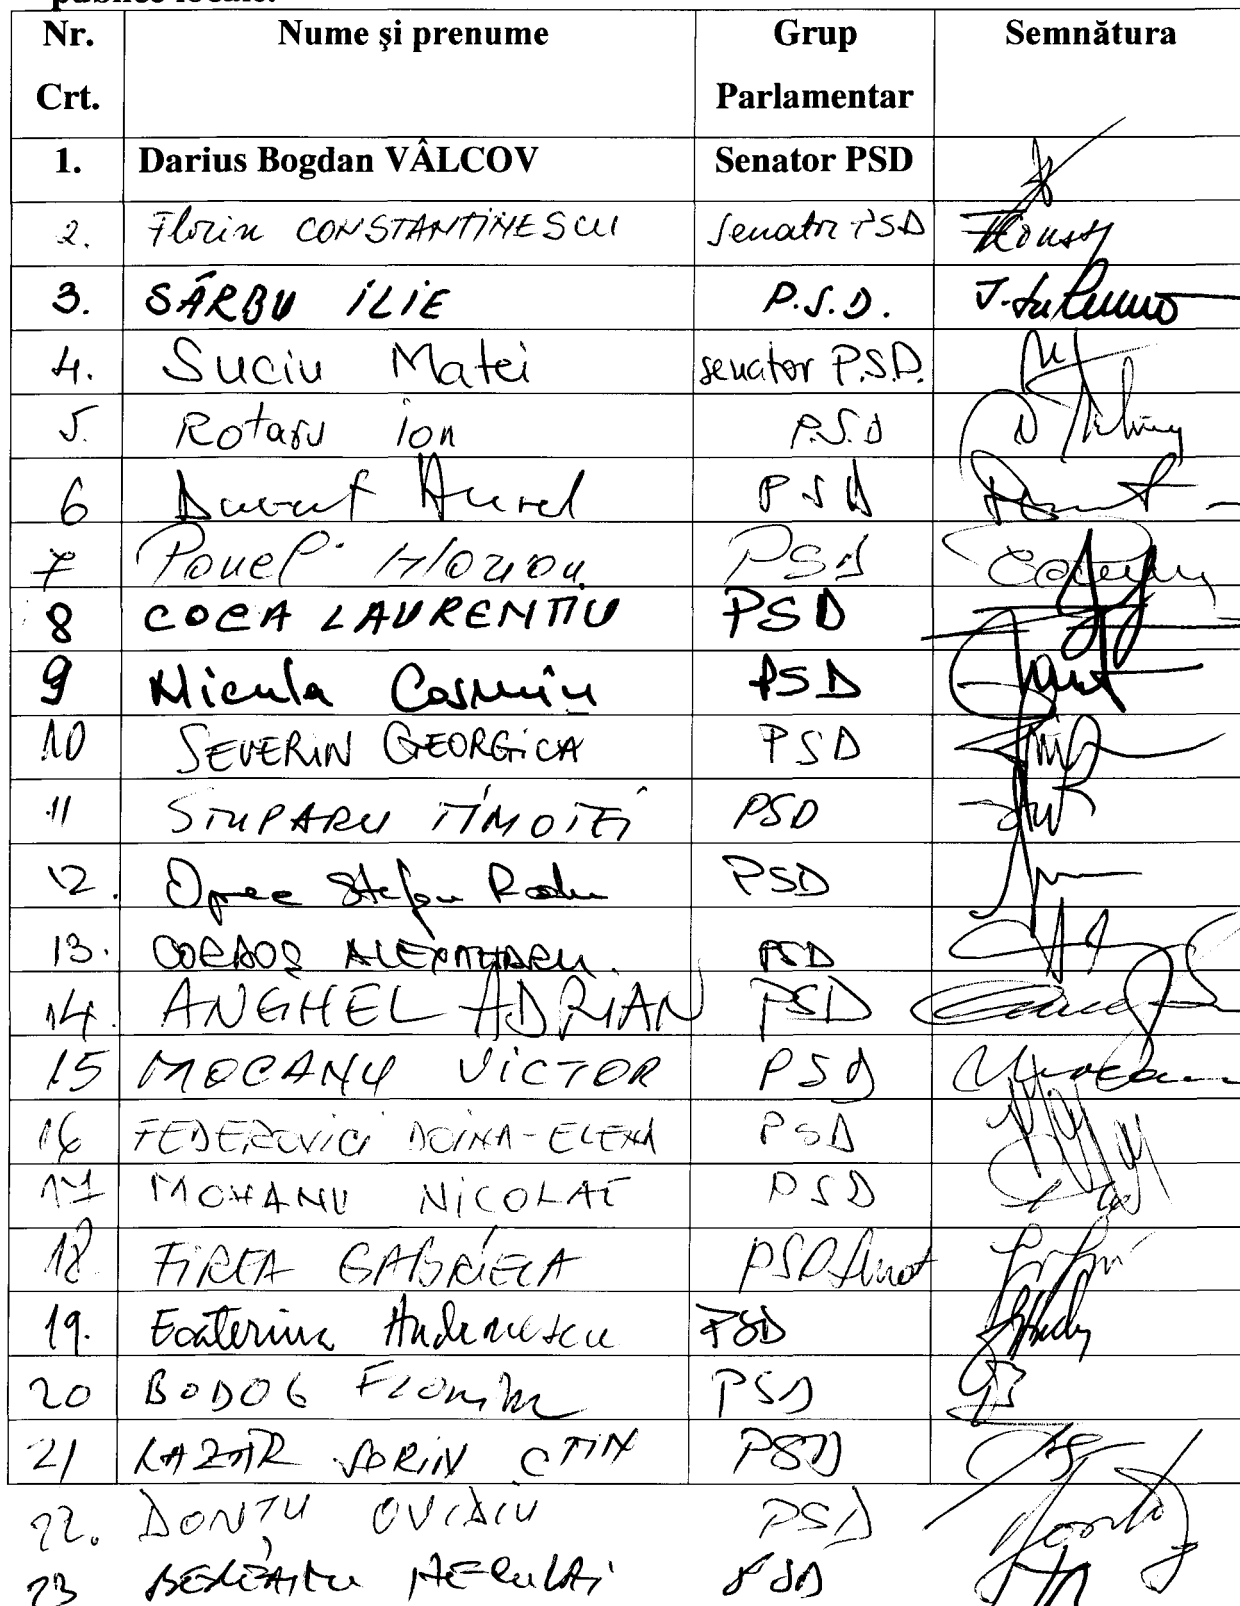 publice locale.
Nr. Crt. Nume şi prenume Grup Parlamentar Semnătura
1. Darius Bogdan VÂLCOV Senator PSD
2. Florin CONSTANTINESCU Senator PSD
3. SÂRBU ILIE P.S.D.
4. Suciu Matei senator P.S.D.
5. Rotaru Ion P.S.D
6 Aurel PSD
7 Pavel PSD
8 COCA LAURENTIU PSD
9 Nicula Cosmin PSD
10 SEVERIN GEORGICA PSD
11 STUPARU TIMOTEI PSD
12. Oprea Stefan Radu PSD
13. CORDOȘ ALEXANDRU PSD
14. ANGHEL ADRIAN PSD
15 MOCANU VICTOR PSD
16 FEDEROVICI DOINA-ELENA PSD
17 MOHANU NICOLAE PSD
18 FIREA GABRIELA PSD
19. Ecaterina Andronescu PSD
20 BODOG Florian PSD
21 LAZĂR SORIN CTIN PSD
22. DONȚU OVIDIU PSD
23 PSD